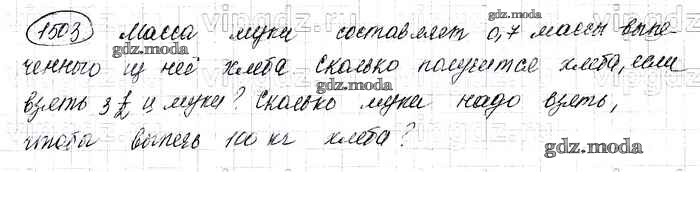 1503 Масса муки составляет 0,7 массы выпе-
gdz.moda
ченного из неё хлеба Сколько получится хлеба, если
gdz.moda
взять 3 1/2 ц муки? Сколько муки надо взять,
чтобы выпечь 100 кг хлеба?
gdz.moda